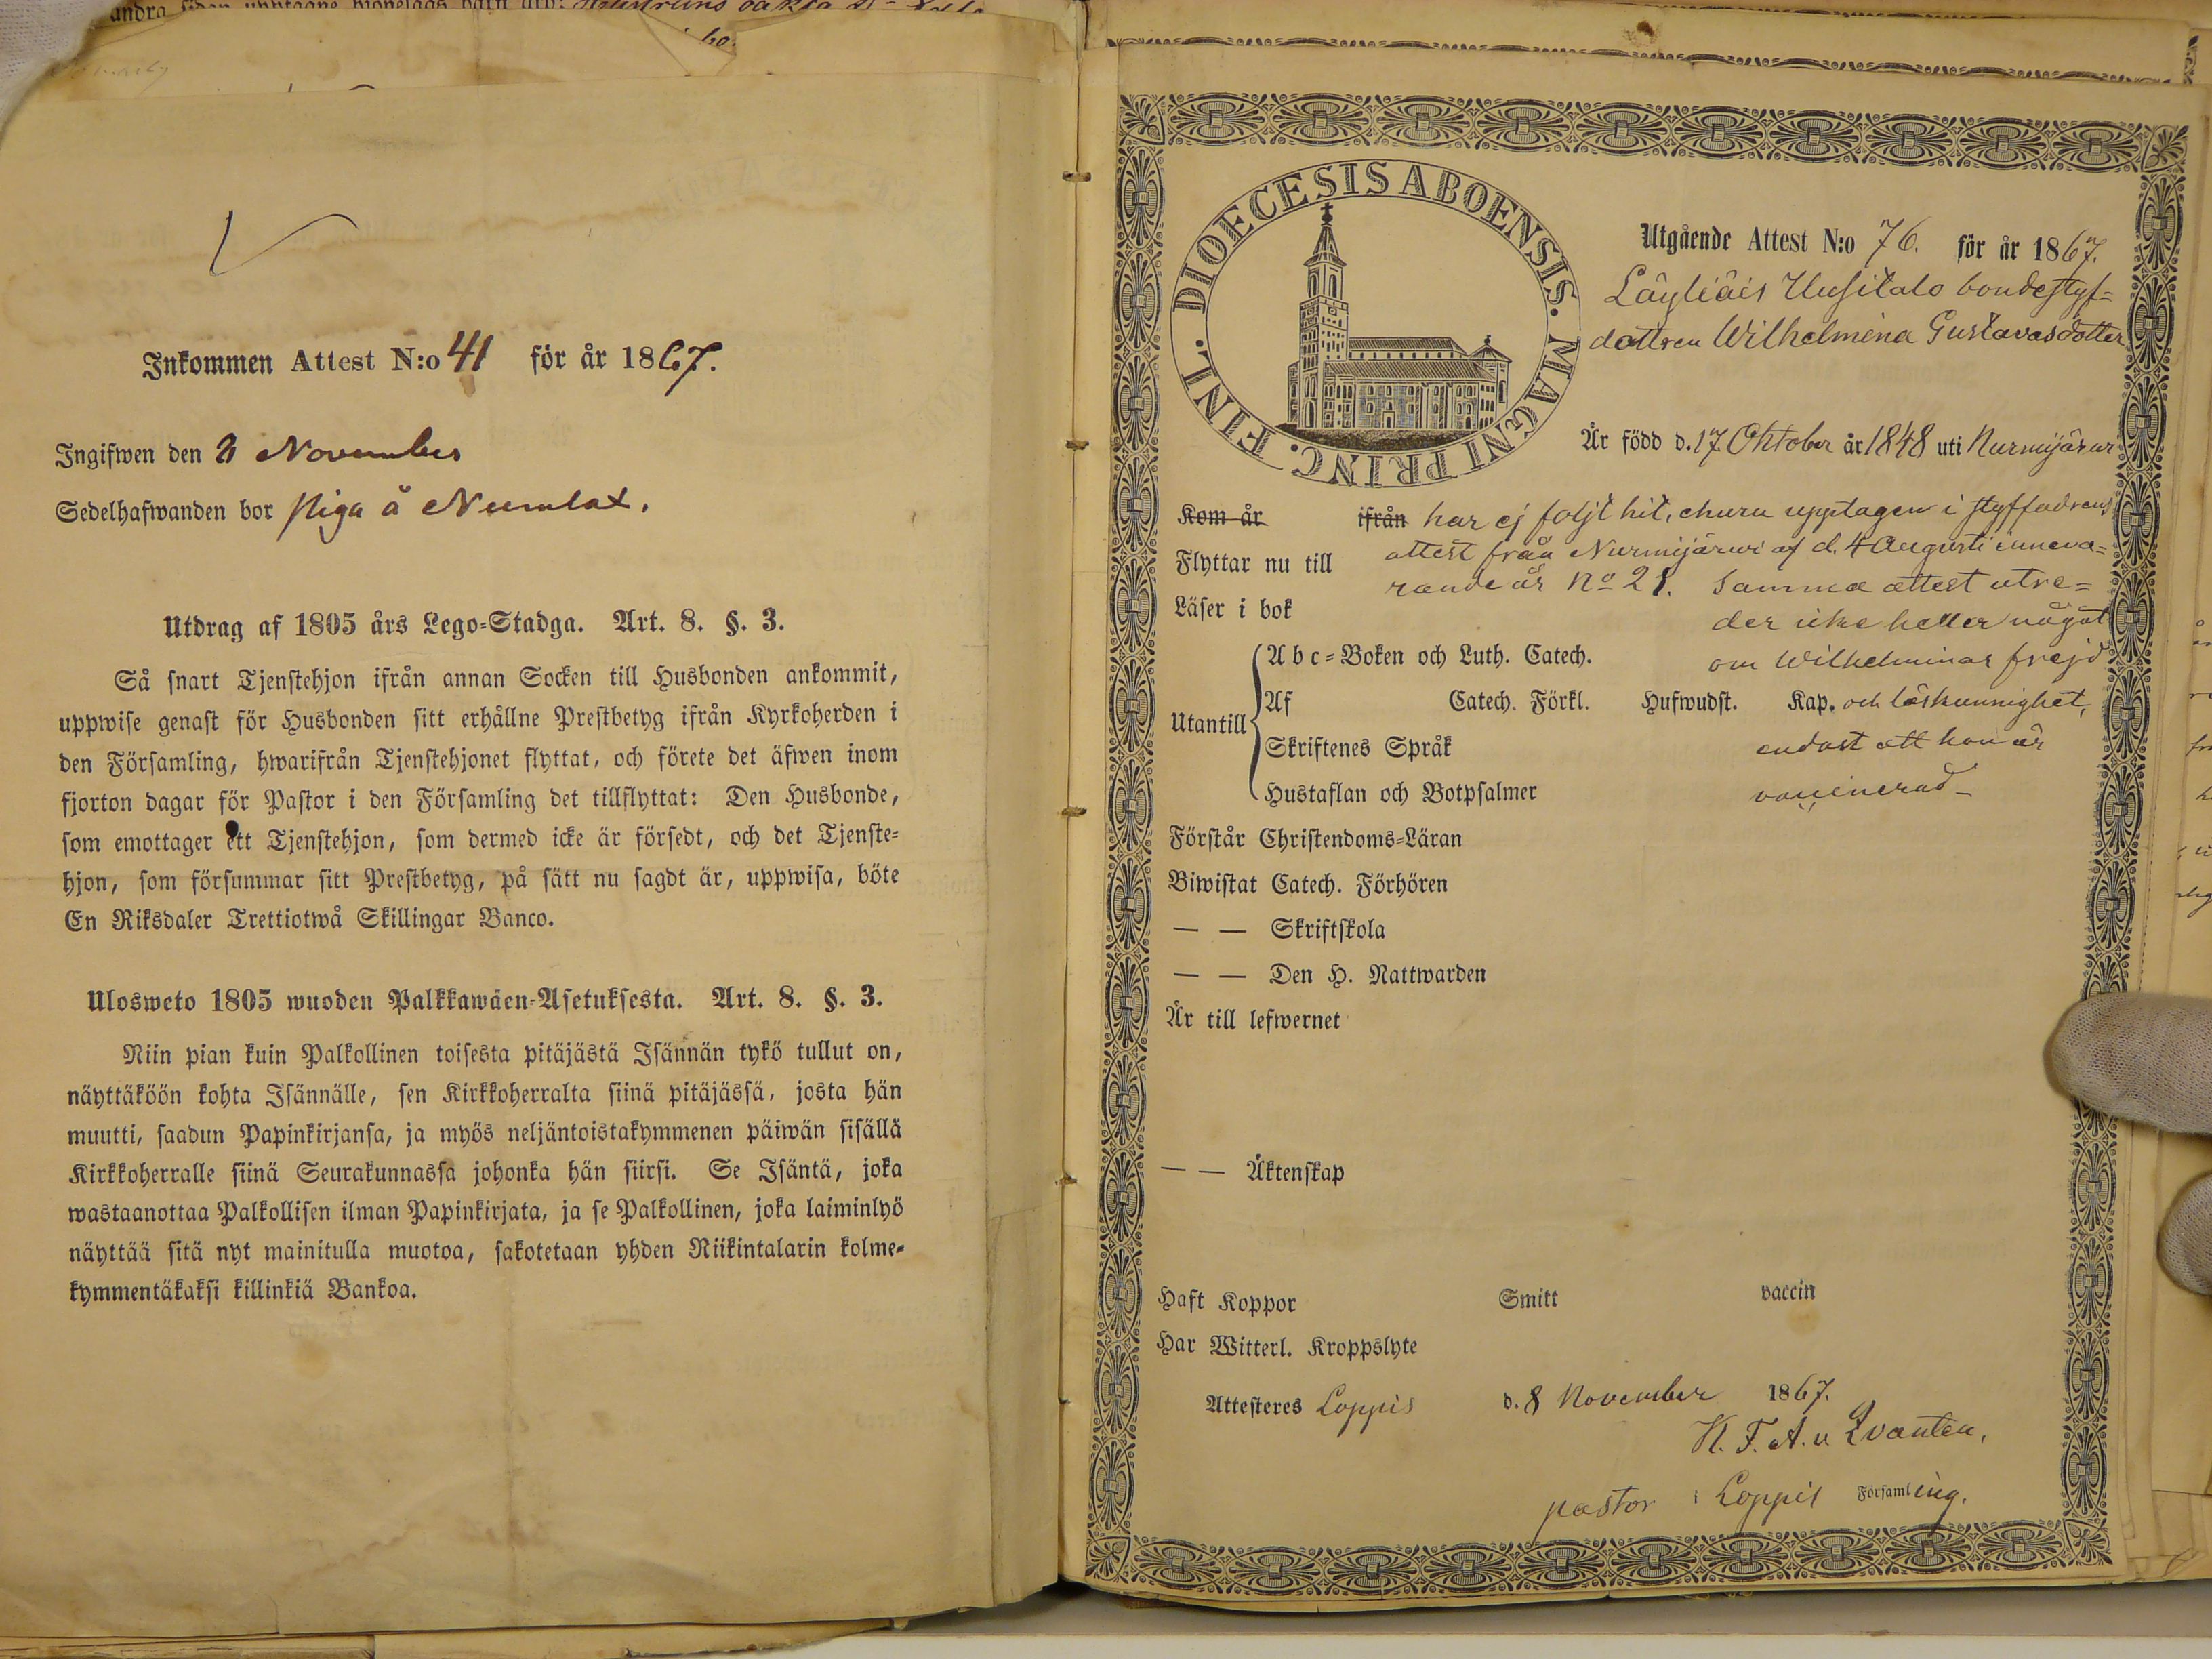 Inkommen Attest N:o 41 för år 1867.
Ingifwen den 8 November
Sedelhafwanden bor piga å Numlax.
Utdrag af 1805 års Lego=Stadga. Art. 8. §. 3.
Så snart Tjenstehjon ifrån annan Socken till Husbonden ankommit,
uppwise genast för Husbonden sitt erhållne Prestbetyg ifrån Kyrkoherden i
den Församling, hwarifrån Tjenstehjonet flyttat, och förete det äfwen inom
fjorton dagar för Pastor i den Församling det tillflyttat: Den Husbonde,
som emottager ett Tjenstehjon, som dermed icke är försedt, och det Tjenste=
hjon, som försummar sitt Prestbetyg, på sätt nu sagdt är, uppwisa, böte
En Riksdaler Trettiotwå Skillingar Banco.
Ulosweto 1805 wuoden Palkkawäen=Asetuksesta. Art. 8. §. 3.
Niin pian kuin Palkollinen toisesta pitäjästä Isännän tykö tullut on,
näyttäköön kohta Isännälle, sen Kirkkoherralta siinä pitäjässä, josta hän
muutti, saadun Papinkirjansa, ja myös neljäntoistakymmenen päiwän sisällä
Kirkkoherralle siinä Seurakunnassa johonka hän siirsi. Se Isäntä, joka
wastaanottaa Palkollisen ilman Papinkirjata, ja se Palkollinen, joka laiminlyö
näyttää sitä nyt mainitulla muotoa, sakotetaan yhden Riikintalarin kolme=
kymmentäkaksi killinkiä Bankoa.
DIOECESIS ABOENSIS. MAGNI PRINC. FINL.
Utgående Attest N:o 76. för år 1867.
Läyliäis Uusitalo bondestyf=
dottren Wilhelmina Gustavasdotter
Är född d. 17 Oktober år 1848 uti Nurmijärwi
Kom år ifrån har ej följt hit, ehuru upptagen i styffadrens
Flyttar nu till attest från Nurmijärwi af d. 4 Augusti inneva=
rande år No 21. Samma attest utre=
Läser i bok
der icke heller något
Abc=Boken och Luth. Catech. om Wilhelminas frejd
Utantill Af Catech. Förkl. Hufwudst. Kap. och läskunnighet,
Skriftenes Språk endast att hon är
Hustaflan och Botpsalmer vaccinerad_
Förstår Christendoms=Läran
Biwistat Catech. Förhören
— — Skriftskola
— — Den H. Nattwarden
Är till lefwernet
— — Äktenskap
Haft Koppor Smitt vaccin
Har Witterl. Kroppslyte
Attesteres Loppis d. 8 November 1867.
K. F. A. v Qvanten,
pastor i Loppis Församling.